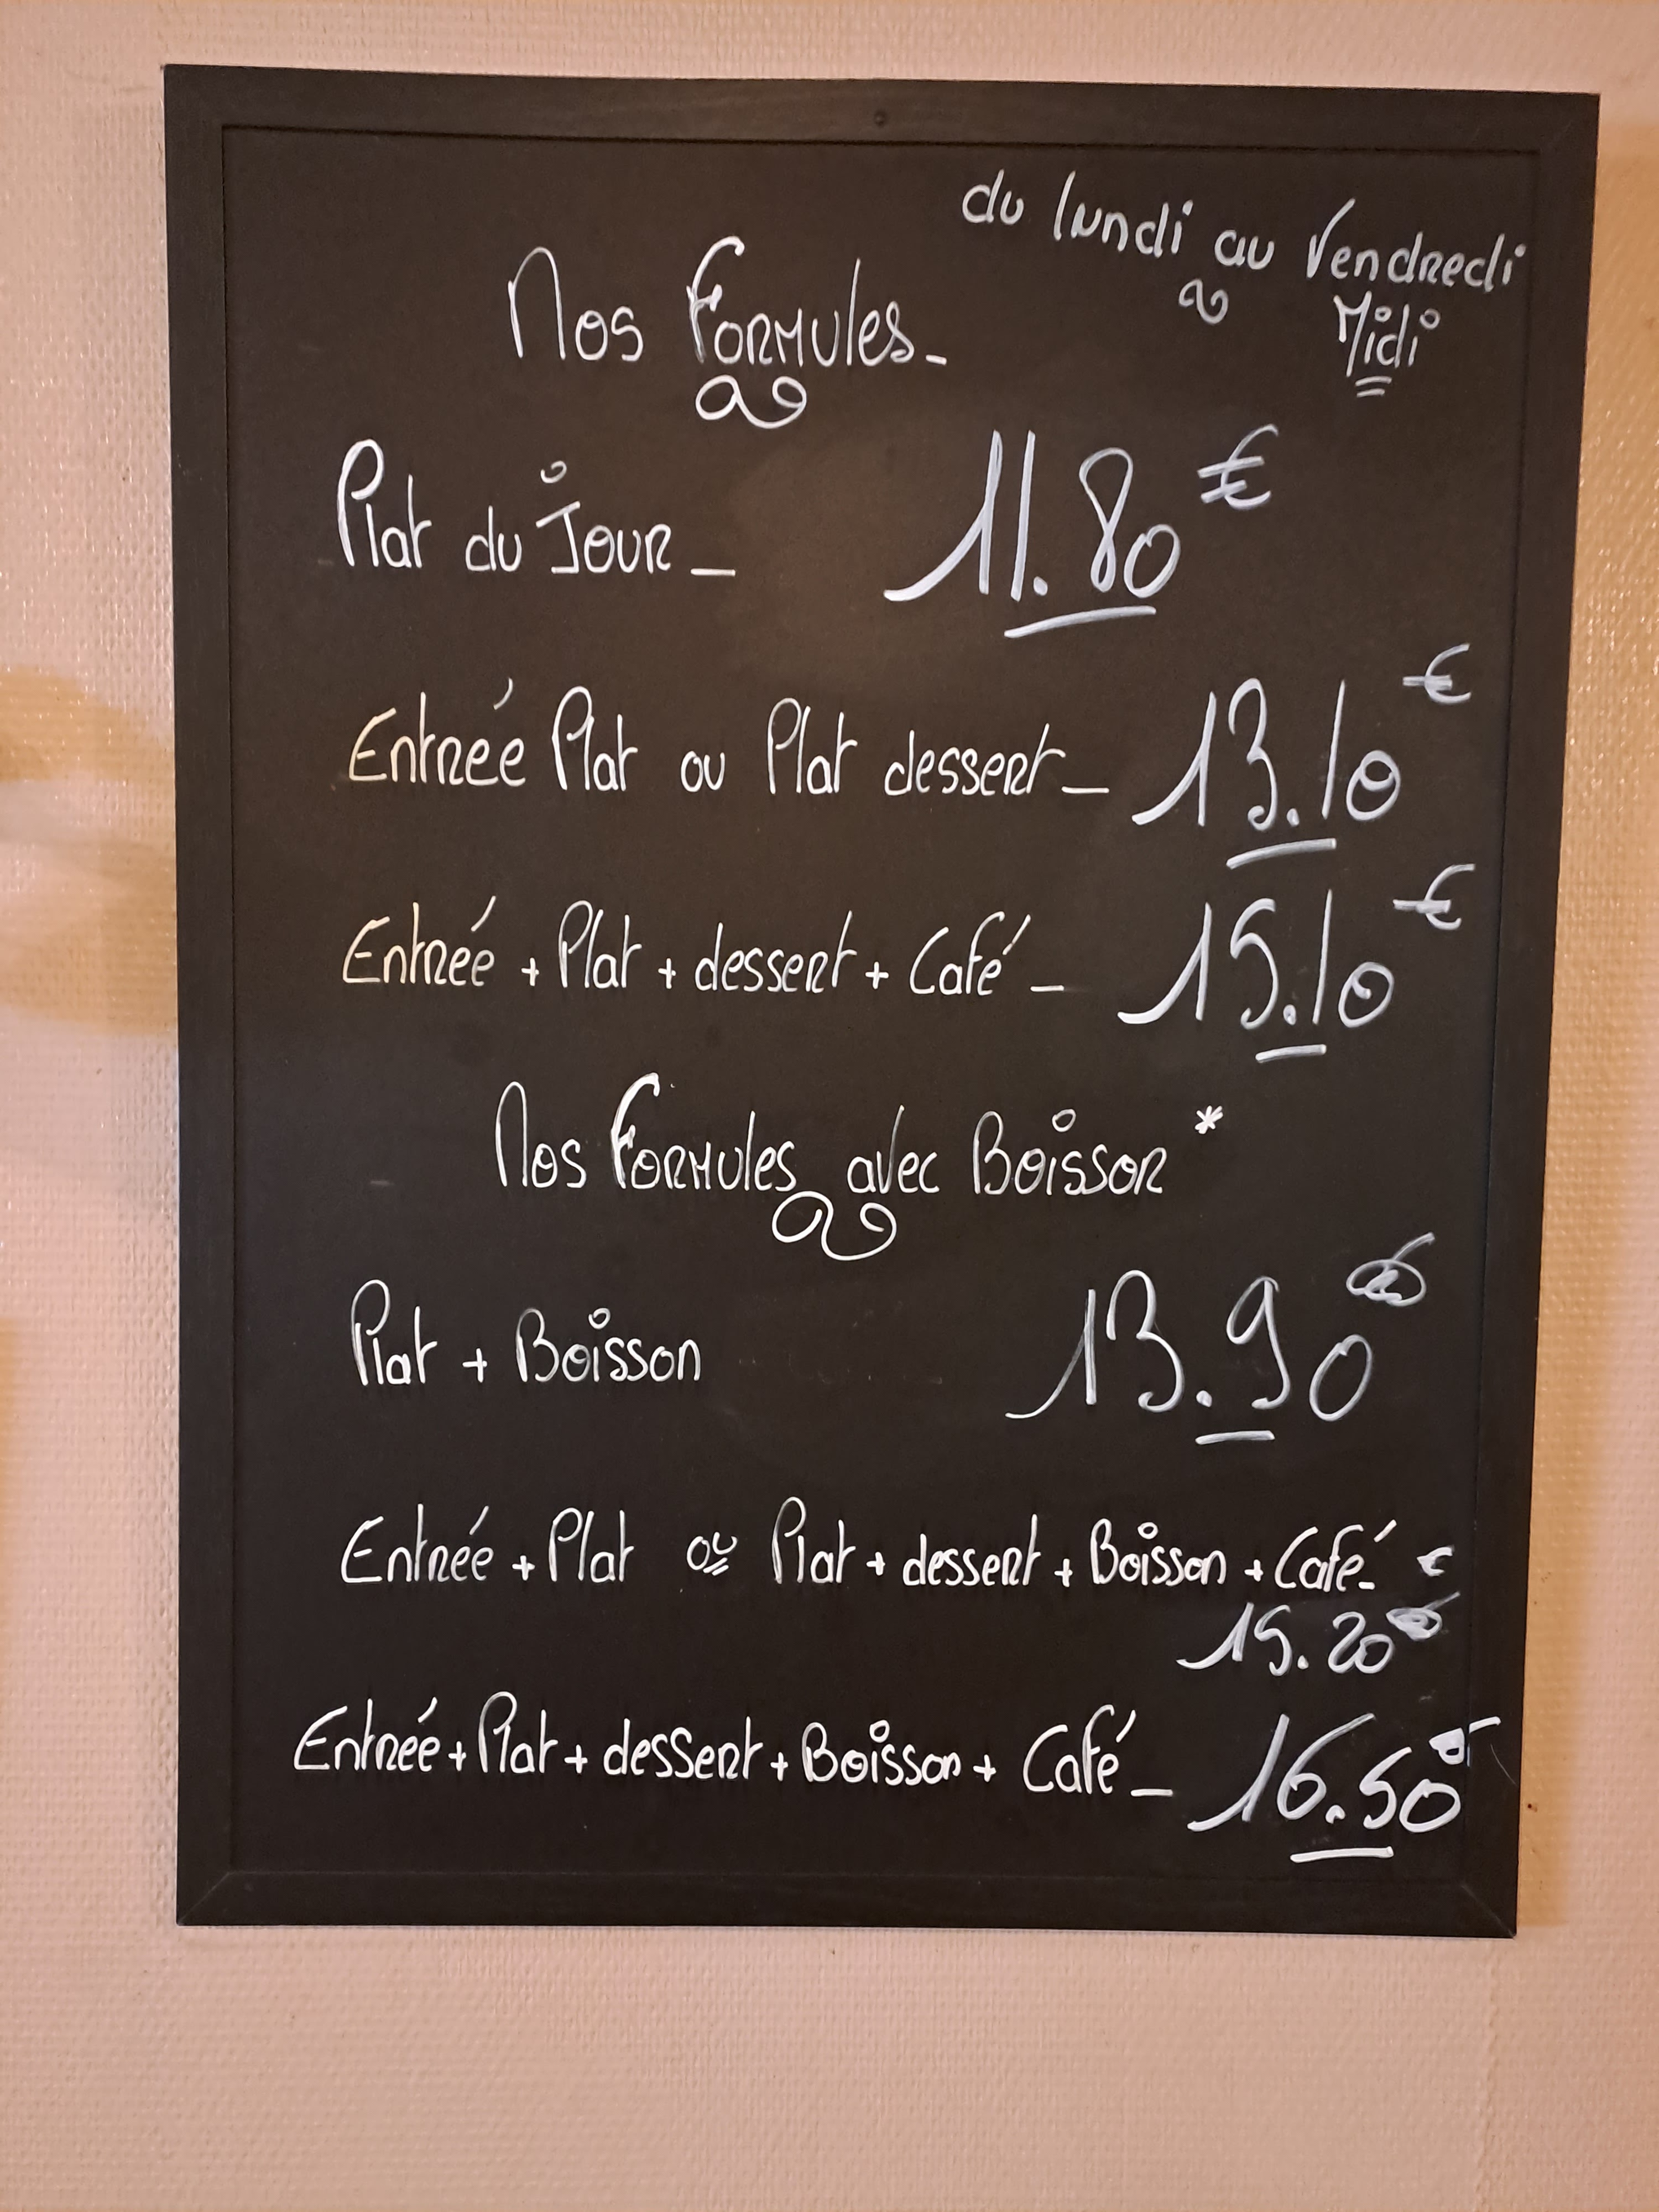 du lundi au Vendredi
Midi
Nos Formules_
Plat du Jour_ 11.80€
Entrée Plat ou Plat dessert_ 13.10€
Entrée + Plat + dessert + Café_ 15.10€
Nos Formules avec Boisson*
Plat + Boisson 13.90€
Entrée + Plat ou Plat + dessert + Boisson + Café_ €
15.20
Entrée + Plat + dessert + Boisson + Café_ 16.50